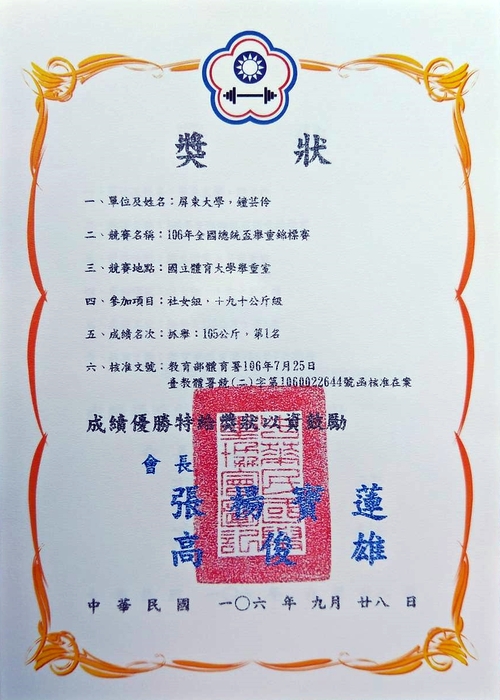 獎狀
一、單位及姓名：屏東大學，鐘芸伶
二、競賽名稱：106年全國總統盃舉重錦標賽
三、競賽地點：國立體育大學舉重室
四、參加項目：社女組，＋九十公斤級
五、成績名次：抓舉：105公斤，第1名
六、核准文號：教育部體育署106年7月25日
臺教體署競(二)字第1060022644號函核准在案
成績優勝特給獎狀以資鼓勵
會長
張楊寶蓮
高俊雄
中華民國 一〇六年九月廿八日